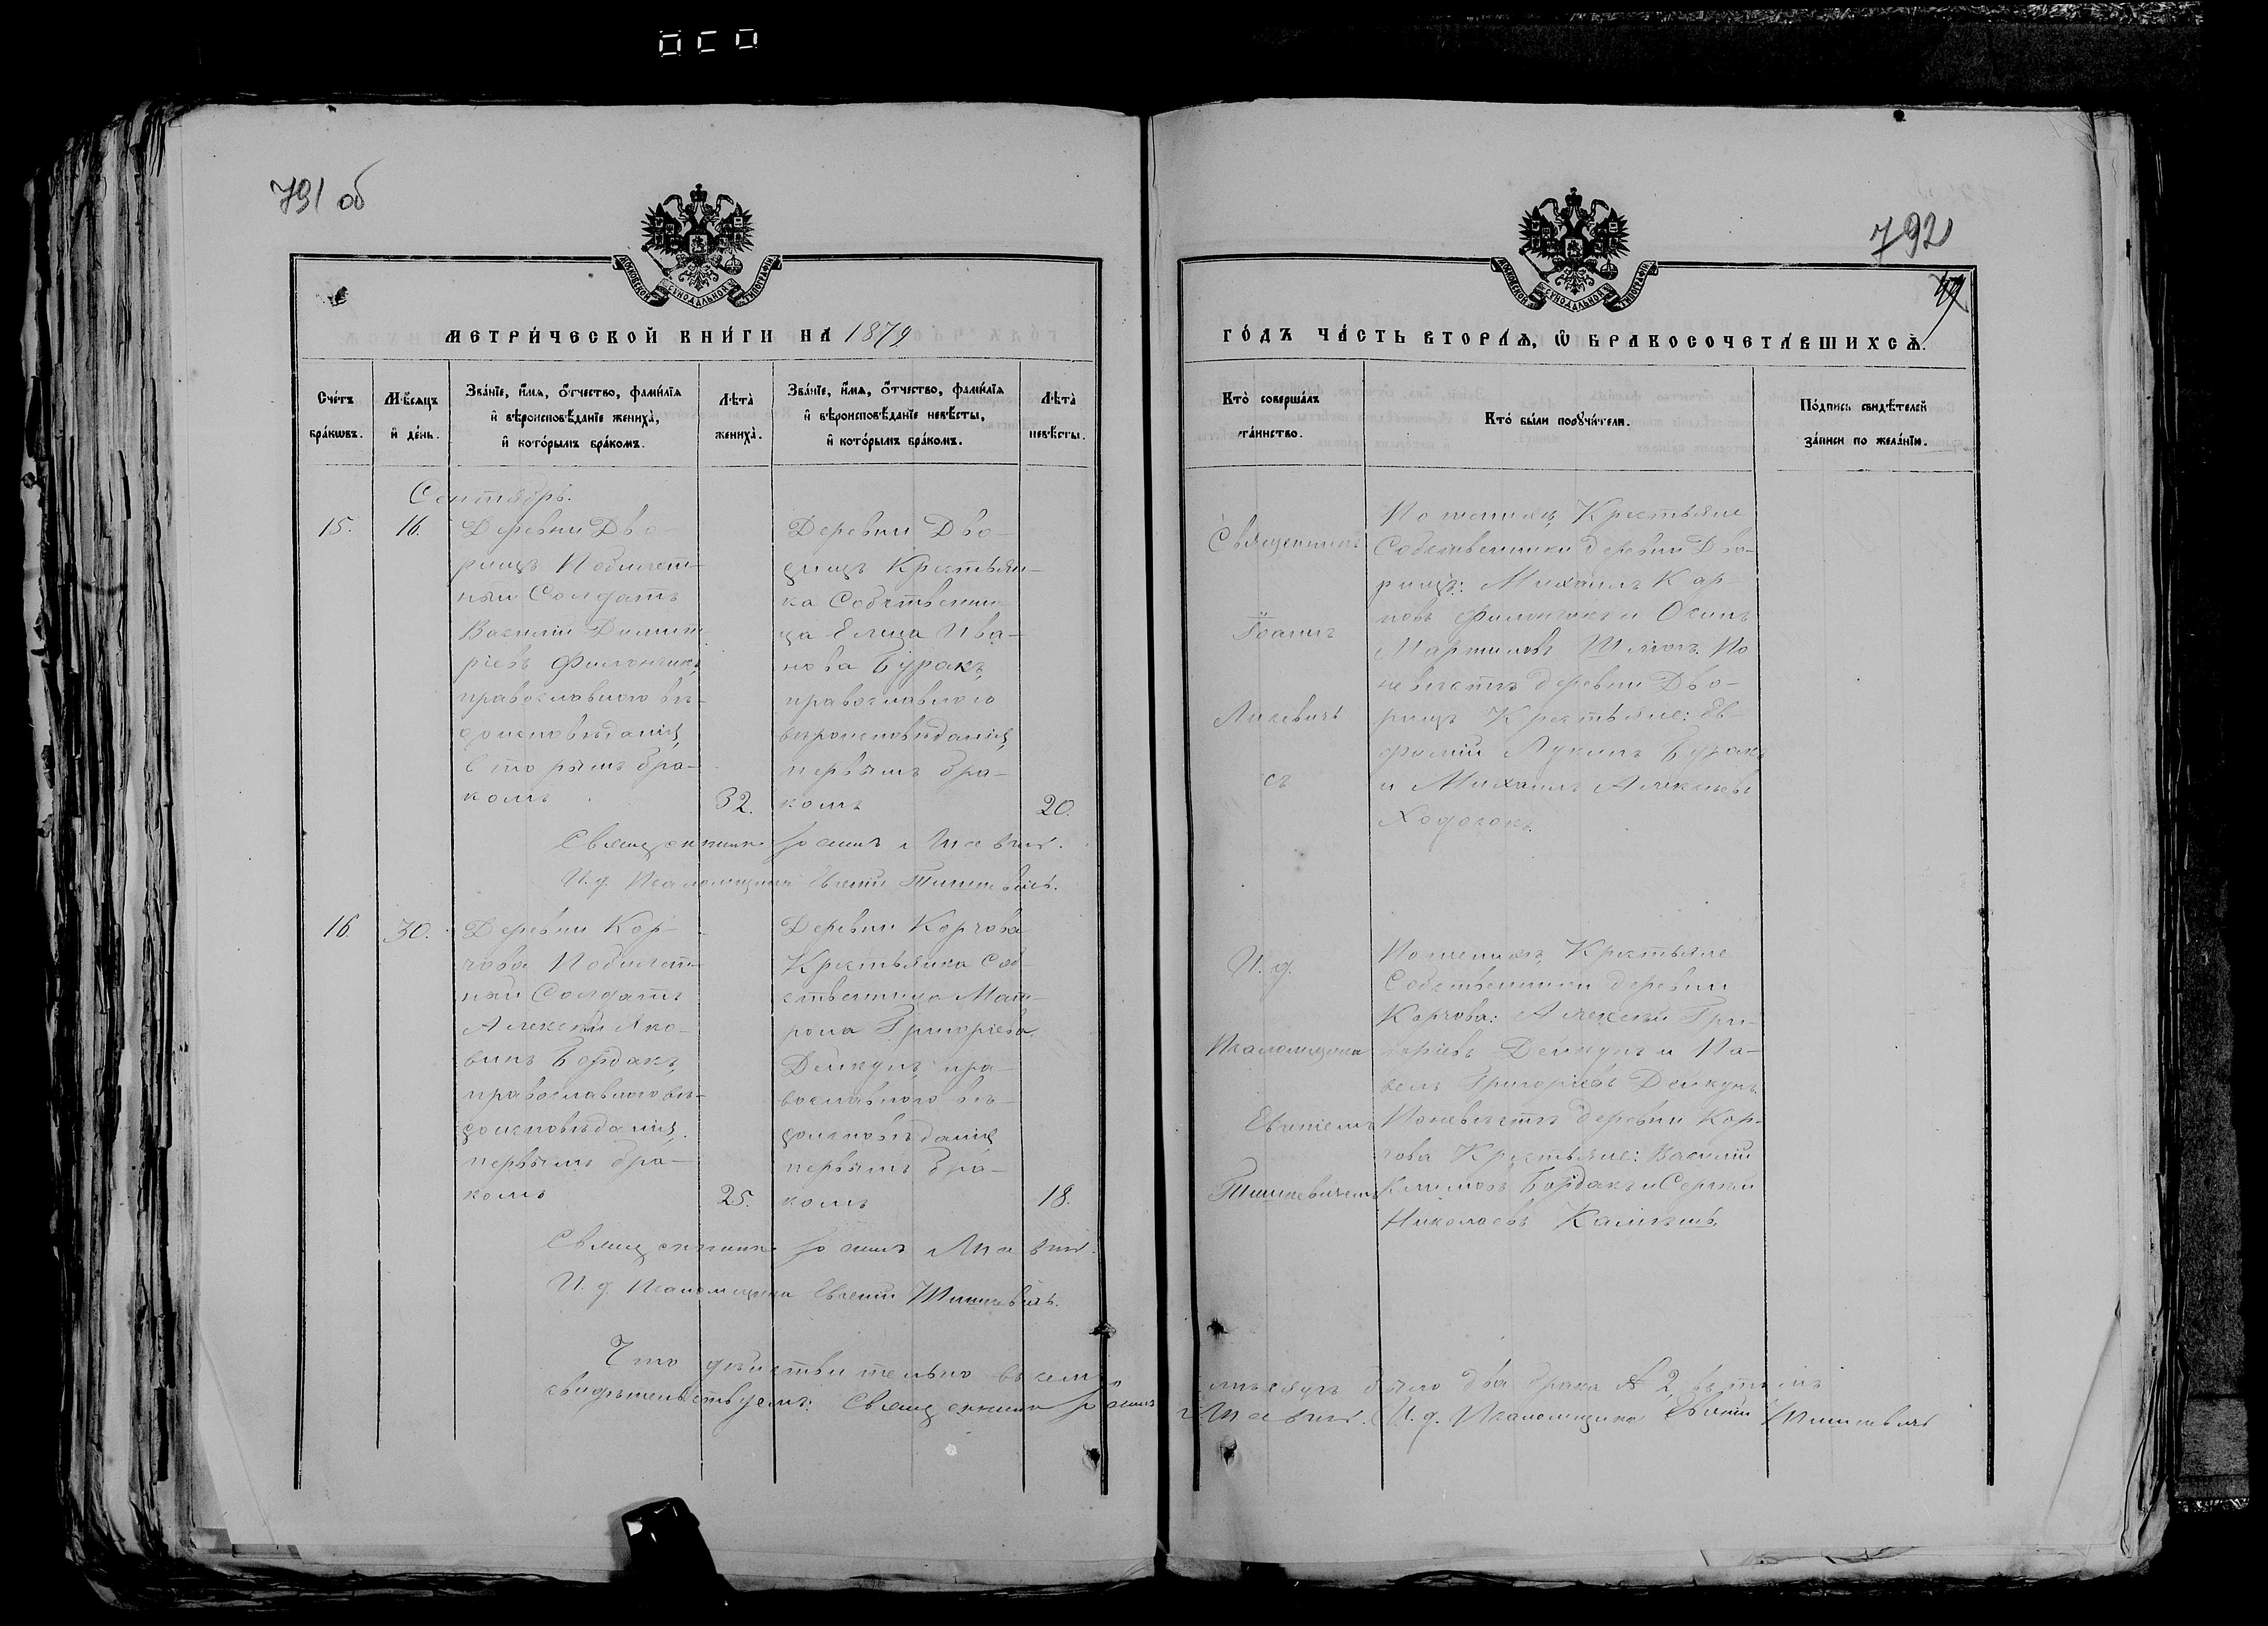 791 об
792
МОСКОВСКОЙ СУНОДАЛЬНОЙ ТИПОГРАФІИ
МОСКОВСКОЙ СУНОДАЛЬНОЙ ТИПОГРАФІИ
МЕТРИ́ЧЕСКОЙ КНИ́ГИ НА 1879
ГО́ДЪ ЧА́СТЬ ВТОРА́Я, Ѡ БРАКОСОЧЕТА́ВШИХСЯ.
Сче́тъ бра́кѡвъ.
М҄ѣсяцъ и де́нь.
Зва́нїе, и҆́мя, о҆́тчество, фами́лїя
и҆ вѣроисповѣ́данїе жениха̀,
и҆ кото́рымъ бра́комъ.
Лѣ́та̀ жениха̀.
Зва́нїе, и҆́мя, о҆́тчество, фами́лїя
и҆ вѣроисповѣ́данїе невѣ́сты,
и҆ кото́рымъ бра́комъ.
Лѣ́та̀ невѣ́сты.
Кто̀ соверша́лъ
та́инство.
Кто̀ бы́ли порꙋчи́тели.
По́дпись свидѣ́телей
за́писи по жела́нїю.
Сентябрь.
15.
16.
Деревни Дво-
рищъ Побилет-
ный Солдатъ
Василій Димит-
ріевъ Филончикъ,
православнаго вѣ-
роисповѣданія,
вторымъ бра-
комъ
32.
Деревни Дво-
рищъ Крестьян-
ка Собственни-
ца Елена Ива-
нова Буракъ,
православнаго
вѣроисповѣданія,
первымъ бра-
комъ
20.
Священникъ
Іоаннъ
съ
По женихѣ Крестьяне
Собственники деревни Дво-
рищъ: Михаилъ Кар-
повъ Филончикъ и Осипъ
Мартиновъ По
невѣстѣ деревни Дво-
рищъ Крестьяне: Ев-
фимій Лукинъ Буракъ
и Михаилъ Алексѣевъ
Священникъ Іоаннъ
И. д. Псаломщика Евгеній Тишкевичъ.
16.
30.
Деревни Кор-
чова Побилет-
ный Солдатъ
Алексѣй Яко-
влевъ Бордакъ,
православнаго вѣ-
роисповѣданія,
первымъ бра-
комъ
25.
Деревни Корчова
Крестьянка Соб-
ственница Мат-
рона Григоріева
Дейкунъ, пра-
вославнаго вѣ-
роисповѣданія
первымъ бра-
комъ
18.
И. д.
Псаломщика
Евгеніемъ
Тишкевичемъ
По женихѣ Крестьяне
Собственники деревни
Корчова: Алексѣй Гри-
горіевъ Дейкунъ и Па-
велъ Григоріевъ Дейкунъ.
По невѣстѣ деревни Кор-
чова Крестьяне: Василій
Климовъ Бордакъ и Сергѣй
Николаевъ
Священникъ Іоаннъ
И. д. Псаломщика Евгеній Тишкевичъ.
Что дѣйствительно въ семъ мѣсяцѣ было два брака № 2, въ томъ
свидѣтельствуемъ: Священникъ Іоаннъ И. д. Псаломщика Евгеній Тишкевичъ